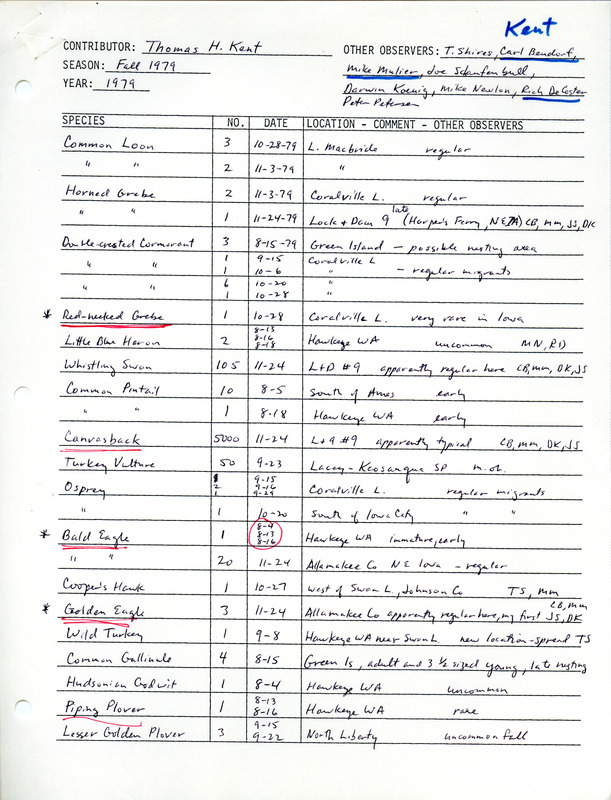 Kent
CONTRIBUTOR: Thomas H. Kent
OTHER OBSERVERS: T. Shires, Carl Bendorf,
SEASON: Fall 1979
Mike Mulier, Joe Schaufenbuil,
YEAR: 1979
Darwin Koenig, Mike Newlon, Rich DeCoster
Peter Petersen
SPECIES NO. DATE LOCATION - COMMENT - OTHER OBSERVERS
Common Loon 3 10-28-79 L. Macbride regular
" " 2 11-3-79 "
Horned Grebe 2 11-3-79 Coralville L. regular
" " 1 11-24-79 Lock + Dam 9 late (Harper's Ferry, NE IA) CB, mm, JS, DK
Double-crested Cormorant 3 8-15-79 Green Island — possible nesting area
" " 1 9-15 Coralville L
1 10-6 " - regular migrants
" " 6 10-20 "
1 10-28 "
* Red-necked Grebe 1 10-28 Coralville L. very rare in Iowa
Little Blue Heron 2 8-13 8-16 8-18 Hawkeye WA uncommon MN, RD
Whistling Swan 105 11-24 L+D #9 apparently regular here CB, mm, DK, JS
Common Pintail 10 8-5 South of Ames early
" " 1 8-18 Hawkeye WA early
Canvasback 5000 11-24 L+9 #9 apparently typical CB, mm, DK, JS
Turkey Vulture 50 9-23 Lacey-Keosauqua SP m.ob.
Osprey 1 9-15
2 9-16 Coralville L. regular migrants
1 9-29
" 1 10-20 South of Iowa City " "
* Bald Eagle 1 8-4 8-13 8-16 Hawkeye WA immature, early
" " 20 11-24 Allamakee Co NE Iowa - regular
Cooper's Hawk 1 10-27 West of Swan L, Johnson Co TS, mm
* Golden Eagle 3 11-24 Allamakee Co apparently regular here, my first CB, mm JS, DK
Wild Turkey 1 9-8 Hawkeye WA near Swan L. new location-spread TS
Common Gallinule 4 8-15 Green Is, adult and 3 ½ sized young, late nesting
Hudsonian Godwit 1 8-4 Hawkeye WA uncommon
Piping Plover 1 8-13 8-16 Hawkeye WA rare
Lesser Golden Plover 3 9-15 9-22 North Liberty uncommon fall